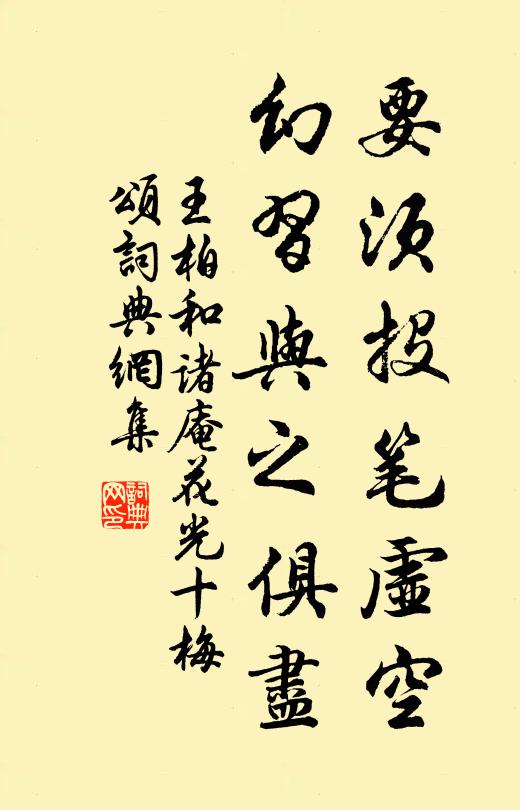 要须投笔虚空
幻習與之俱盡
王柏和诸庵花光十梅
頌詞典網集
詞典
网印